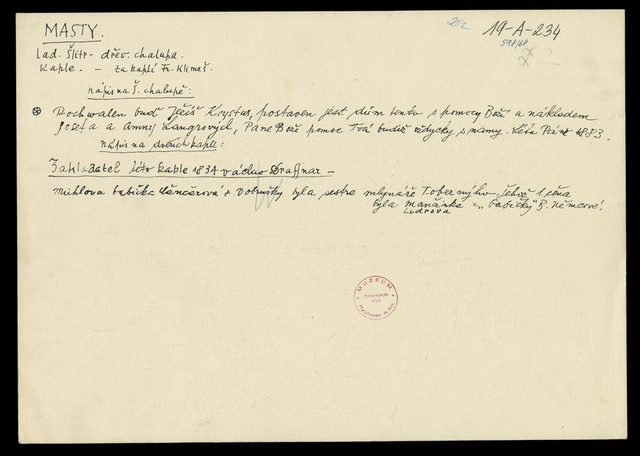 202 19-A-234
MASTY. 598/68
Lad. Šlitr - dřev. chalupa.
Kaple. - za kaplí Fr. Klimeš.
nápis na Š. chalupě:
Pochwalen buď Ježíš Krystus, postaven jest dům tento s pomocy Boží a nákladem
Josefa a Anny Langrových, Pane Bože pomoc Twá budiž vždycky s namy. Léta Páně 1883.
nápis na kapli:
Zakladatel této kaple 1834 Václav Draffnar -
Michlova babička z Voňavky byla sestra mlynáře Tobermýho, jehož 1. žena
byla Mančinka z "Babičky" B. Němcové.
Ludrova
MUZEUM